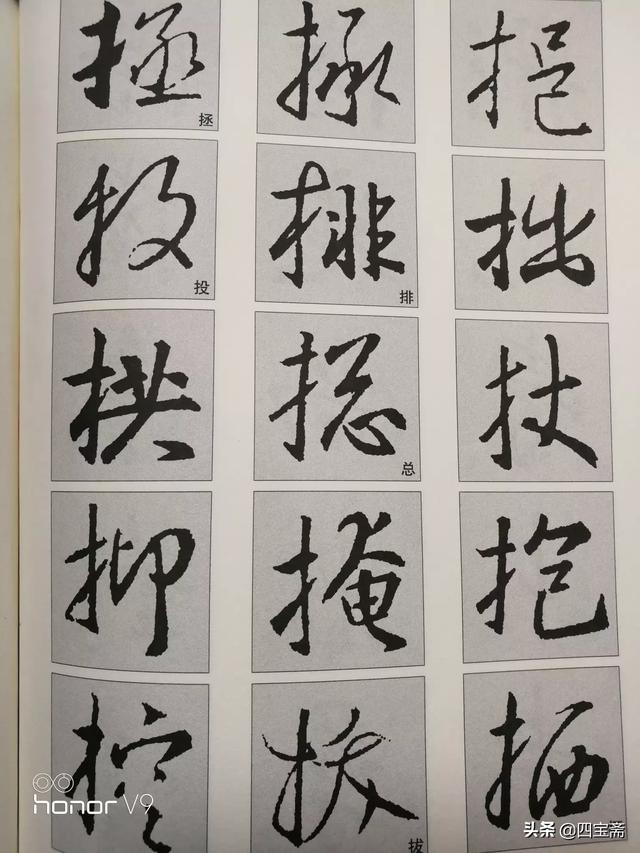 拯 挹
拯
投 排 拙
投 排
拱 揔 杖
总
抑 掩 抱
控 拔
拔
honor V9
头条 @四宝斋